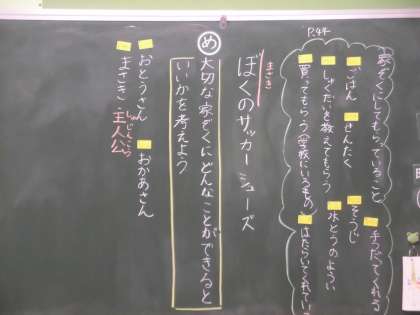 P.44
家ぞくにしてもらっていること
手つだってくれる
ごはん せんたく そうじ
しゅくだいを教えてもらう 水とうのようい
買ってもらう(学校にいるもの) はたらいてくれている
まさき
ぼくのサッカーシューズ
め
大切な家ぞくにどんなことができると
いいかを考えよう
おとうさん おかあさん
まさき 主人公
しゅじんこう